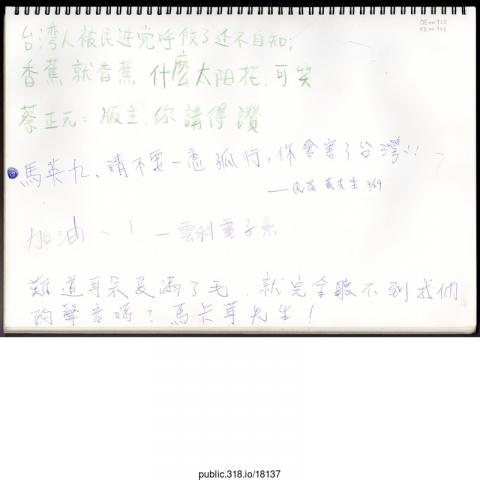 台湾人被民進党呼攸了还不自知;
香蕉就香蕉 什麼太阳花,可笑
蔡正元:版主,你講得讚
馬英九、請不要一意孤行,你會害了台灣!!
——民眾 黃先生 3/29
加油~! —雲科電子系
難道耳朵長滿了毛,就完全聽不到我們
的聲音嗎?馬卡茸先生!
public.318.io/18137